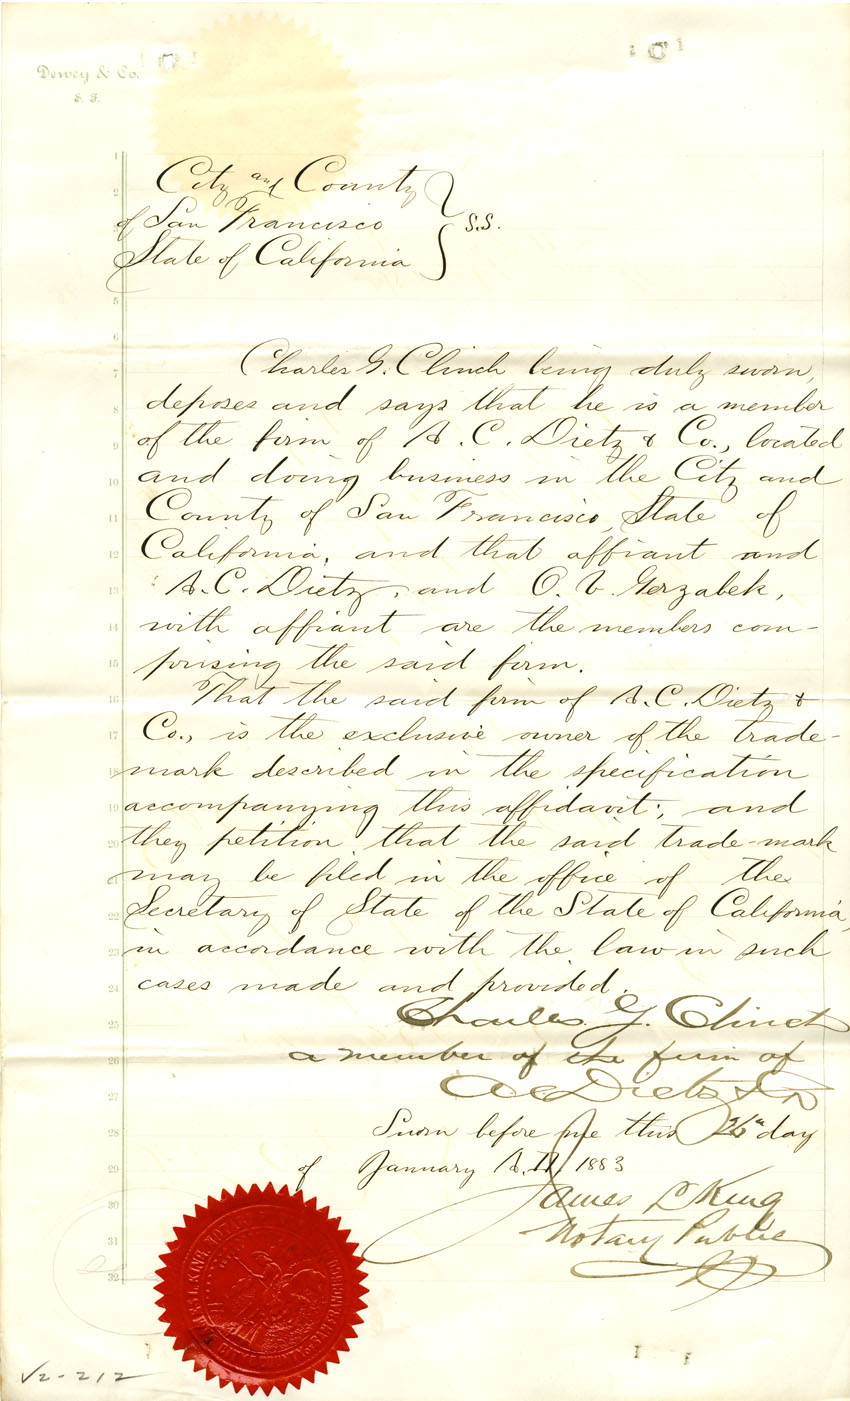 Dewey & Co.
S. F.
City and County
of San Francisco
State of California
S.S.
Charles G. Clinch being duly sworn,
deposes and says that he is a member
of the firm of A. C. Dietz & Co., located
and doing business in the City and
County of San Francisco, State of
California, and that affiant and
A. C. Dietz, and O. V. Gerzabek,
with affiant are the members com-
prising the said firm.
That the said firm of A. C. Dietz &
Co., is the exclusive owner of the trade-
mark described in the specification
accompanying this affidavit; and
they petition that the said trade-mark
may be filed in the office of the
Secretary of State of the State of California,
in accordance with the law in such
cases made and provided.
Charles G. Clinch
a member of the firm of
A C Dietz & Co
Sworn before me this 26th day
of January A.D. 1883
James L King
Notary Public
V2-212